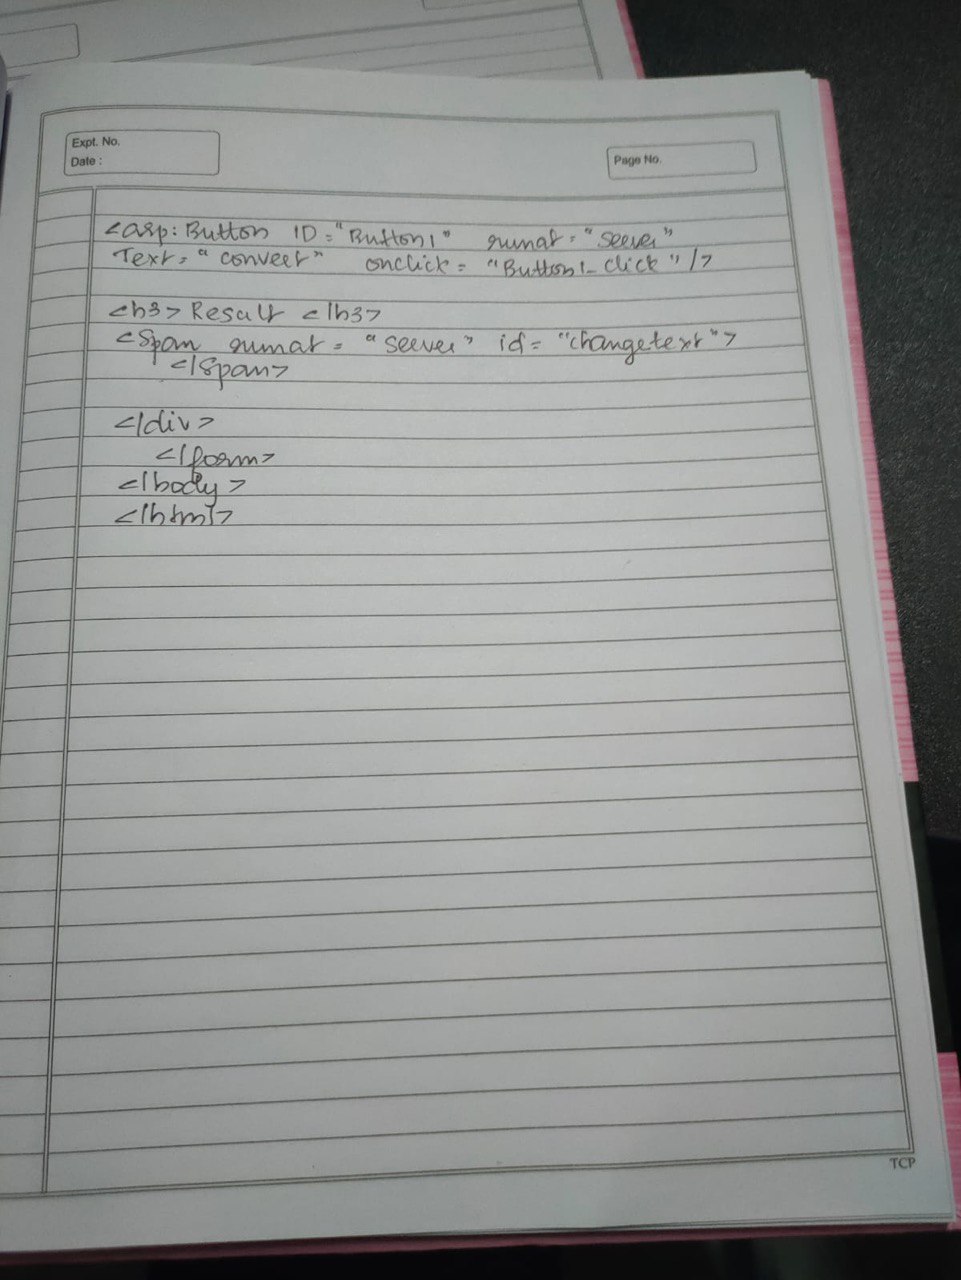 Expt. No.
Date :
Page No.
<asp:Button ID="Button1" runat="server"
Text="convert" onclick="Button1_click"/>
<h3> Result </h3>
<Span runat="server" id="changetext">
</Span>
</div>
</form>
</body>
</html>
TCP